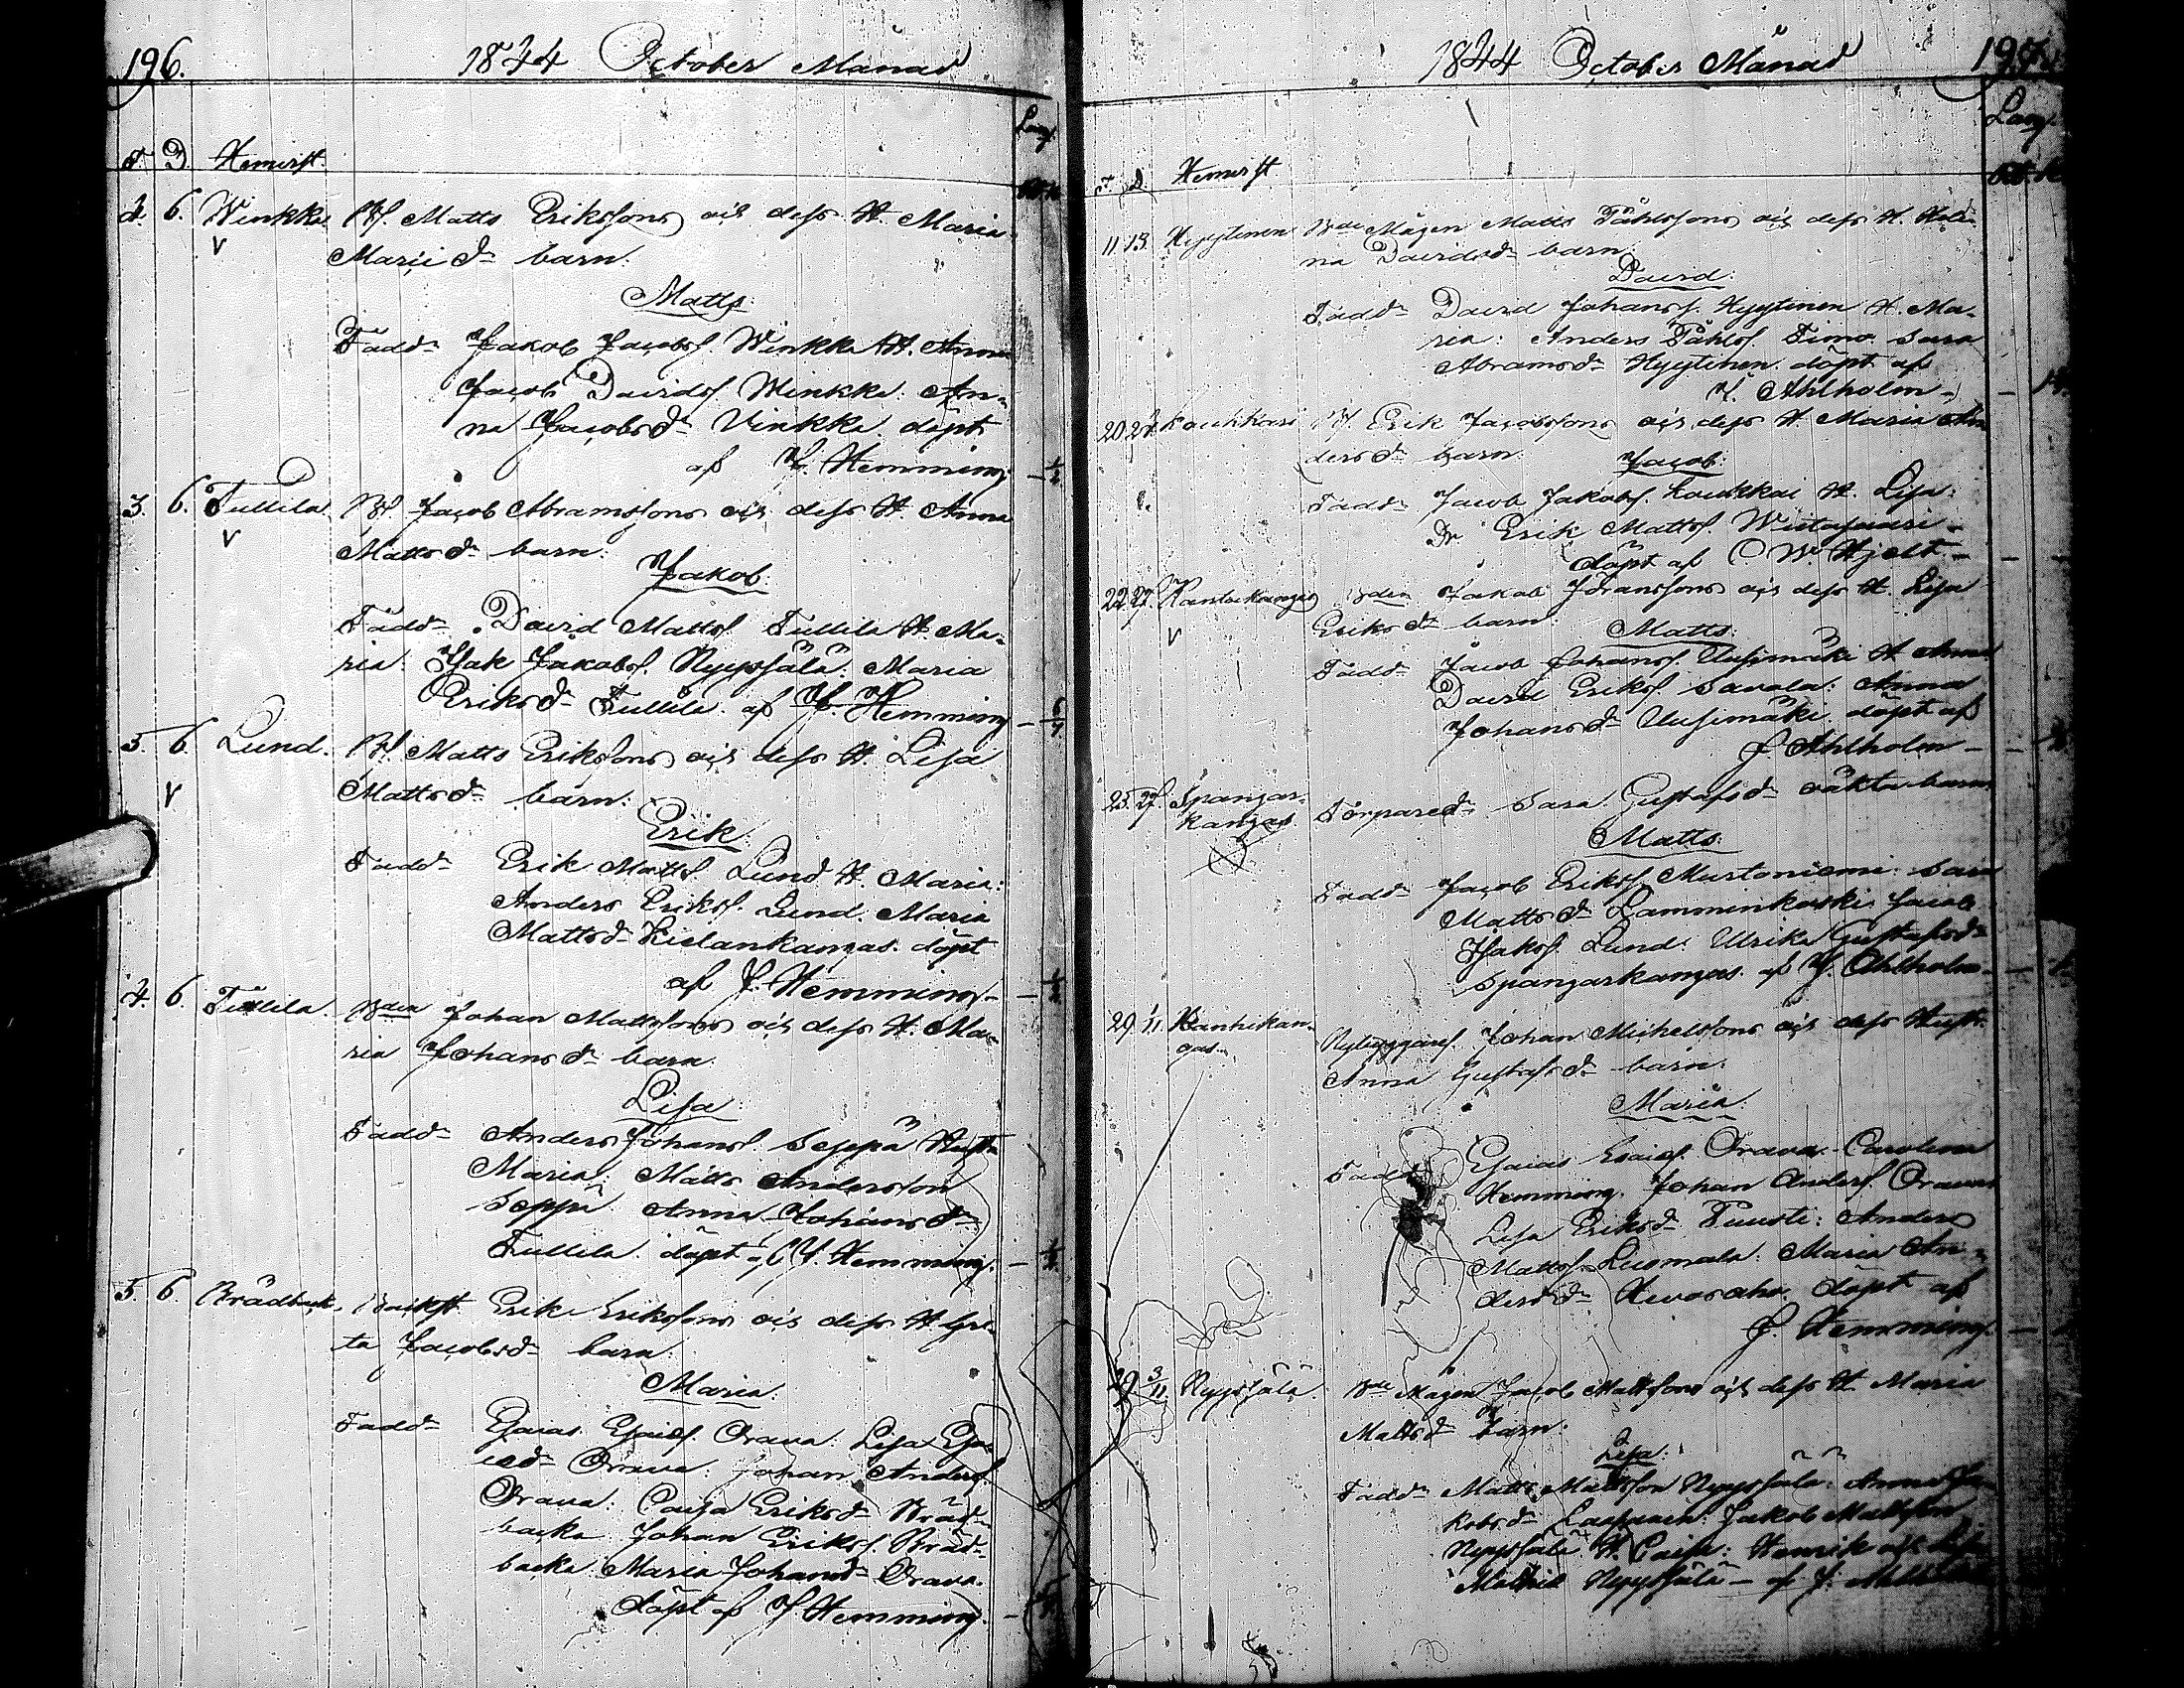 196. 1844 October Månad
Lösg.
F. D. Hemvist.
2. 6. Winkka Bd. Matts Erikssons och dess H. Maria
V Marii dr barn:
Matts.
Fadd: Jakob Jacobss. Winkka H. Anna
Jacob Davidss. Winkka: An-
na Jacobsdr Vinkka döpt
af J. Hemming. – 1/2
3. 6. Tullila. Bd. Jacob Abramssons och dess H. Anna
V
Mattsdr barn:
Jakob.
Fadd: David Mattss. Tullila H. Ma-
ria: Isak Jakobss. Nygssälä: Maria
Eriksdr Tullila. af J. Hemming –
5. 6. Lund. Bd. Matts Erikssons och dess H. Lisa
V Mattsdr barn:
Erik.
Fadd: Erik Mattss. Lund H. Maria:
Anders Erikss. Lund. Maria
Mattsdr Kielankangas. döpt
af J. Hemming –
4. 6. Tullila. Bden Johan Mattssons och dess H. Ma-
ria Johansdr barn.
Lisa
Fadd: Anders Johanss. Seppä Hust.
Maria: Matts Andersson
Seppä Anna Johansdr
Tullila. döpt af J. Hemming. –
5. 6. Brädbacka. Erik Erikssons och dess H. Gre-
ta Jacobsdr barn.
Maria.
Fadd: Esaias Esaiss. Orava: Lisa Esai-
aedr Orava: Johan Anderss.
Orava: Caisa Eriksdr Bräd-
backa Johan Erikss. Bräd-
backa. Maria Johansdr Orava.
döpt af J. Hemming. –
1844 October Månad 197.
Lösg.
F. D. Hemvist
11. 13. Hyytinen Bde Mågen Matts Påhlssons och dess H. Hele-
na Davidsdr barn.
David.
Fadd: David Johanss. Hyytinen H. Ma-
ria: Anders Påhlss. Timo. Sara
Abramsdr Hyytinen. döpt af
J. Ahlholm –
20. 27. Koukkari Bd. Erik Jacobssons och dess H. Maria An-
dersdr barn.
Jacob.
Fadd: Jacob Jakobss. Koukkari H. Lisa.
Dr. Erik Mattss.
döpt af C. W. Hjelt –
22. 27. Rantakangas Bden Jakob Johanssons och dess H. Lisa
V Eriksdr barn.
Matts.
Fadd: Jacob Johanss. Uusimäki H. Anna
David Erikss. Savola: Anna
Johansdr Uusimäki. döpt af
J. Ahlholm –
25. 27. Spangar-
kangas. Torparedr Sara Gustafsdr oäkta barn
Matts.
Fadd: Jacob Erikss. Murtoniemi: Sara
Mattsdr Lamminkoski. Jacob
Isakss. Lund: Ulrika Gustafsdr
Spangarkangas. af J. Ahlholm –
29. Hanhikan-
gas. Nybyggaren Johan Michelssons och dess Hust.
Anna Gustafsdr barn.
Maria.
Fadd: Esaias Esaiss. Orava. Carolina
Hemming. Johan Anderss. Orava
Lisa Eriksdr Tuusti: Anders
Mattss. Luomala: Maria An-
dersdr Hevosaho. döpt af
J. Hemming. –
29 3/11 Nygssälä. Bde Mågen Jacob Mattssons och dess H. Maria
Mattsdr barn.
Lisa.
Fadd: Matts Mattsson Nygssälä: Anna Ja-
kobsdr Jakob Mattsson
Nygssälä H. Caisa: Henrik och Lisa
Nygssälä – af J. Ahlholm